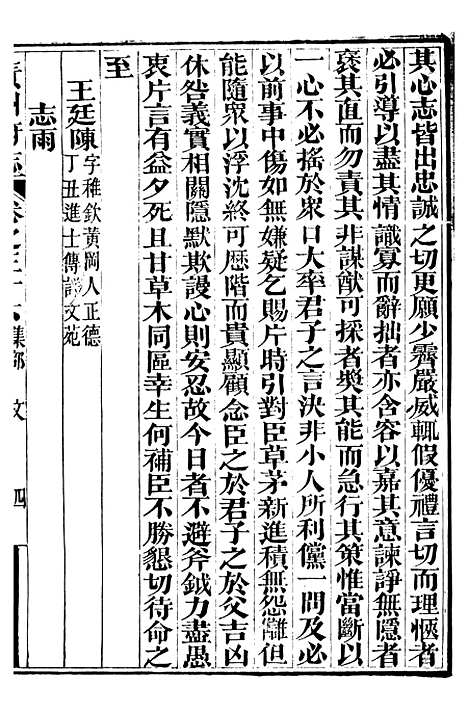 其心志皆出忠誠之切更願少霽嚴威輒假優禮言切而理愜者
必引導以盡其情識寡而辭拙者亦含容以嘉其意諫諍無隱者
褒其直而勿責其非謀猷可採者奬其能而急行其策惟當斷以
一心不必搖於衆口大率君子之言決非小人所利儻一問及必
以前事中傷如無嫌疑乞賜片時引對臣草茅新進積無怨讎但
能隨衆以浮沈終可歷階而貴顯顧念臣之於君子之於父吉凶
休咎義實相關隱默欺謾心則安忍故今日者不避斧鉞力盡愚
衷片言有益夕死且甘草木同區幸生何補臣不勝懇切待命之
至
王廷陳字稚欽黃岡人正德
丁丑進士傳詳文苑
志雨
黃州府志 卷之三十 集部 文 四